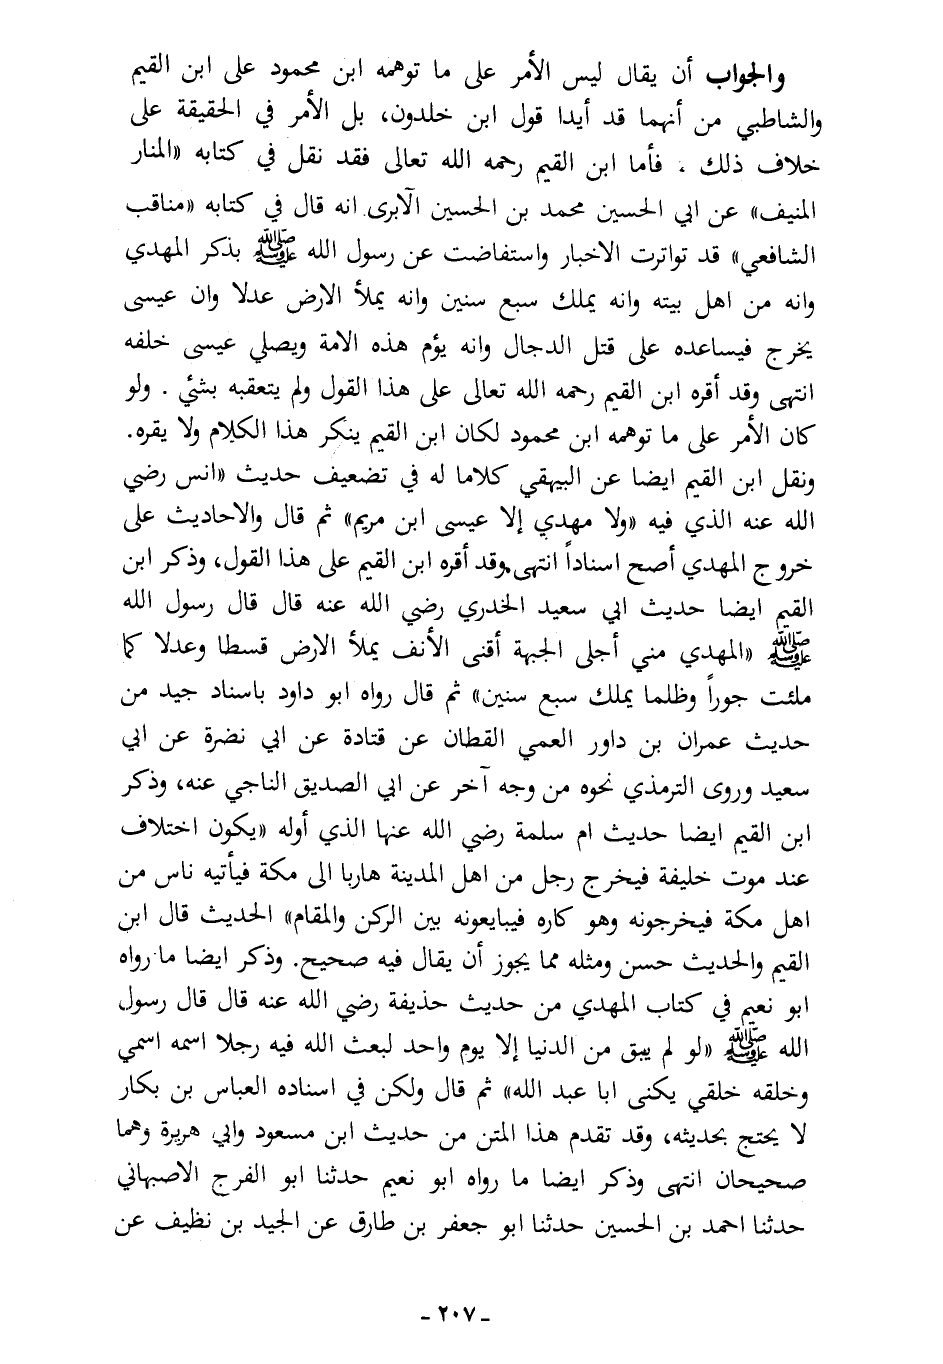 والجواب أن يقال ليس الأمر على ما توهمه ابن محمود على ابن القيم
والشاطبي من أنهما قد أيدا قول ابن خلدون، بل الأمر في الحقيقة على
خلاف ذلك . فأما ابن القيم رحمه الله تعالى فقد نقل في كتابه «المنار
المنيف» عن ابي الحسين محمد بن الحسين الآبرى انه قال في كتابه «مناقب
الشافعي» قد تواترت الاخبار واستفاضت عن رسول الله ﷺ بذكر المهدي
وانه من اهل بيته وانه يملك سبع سنين وانه يملأ الارض عدلا وان عيسى
يخرج فيساعده على قتل الدجال وانه يؤم هذه الامة ويصلي عيسى خلفه
انتهى وقد أقره ابن القيم رحمه الله تعالى على هذا القول ولم يتعقبه بشئي . ولو
كان الأمر على ما توهمه ابن محمود لكان ابن القيم ينكر هذا الكلام ولا يقره.
ونقل ابن القيم ايضا عن البيهقي كلاما له في تضعيف حديث «انس رضي
الله عنه الذي فيه «ولا مهدي إلا عيسى ابن مريم» ثم قال والاحاديث على
خروج المهدي أصح اسناداً انتهى.وقد أقره ابن القيم على هذا القول، وذكر ابن
القيم ايضا حديث ابي سعيد الخدري رضي الله عنه قال قال رسول الله
ﷺ «المهدي مني أجلى الجبهة أقنى الأنف يملأ الارض قسطا وعدلا كما
ملئت جوراً وظلما يملك سبع سنين» ثم قال رواه ابو داود باسناد جيد من
حديث عمران بن داور العمي القطان عن قتادة عن ابي نضرة عن ابي
سعيد وروى الترمذي نحوه من وجه آخر عن ابي الصديق الناجي عنه، وذكر
ابن القيم ايضا حديث ام سلمة رضي الله عنها الذي أوله «يكون اختلاف
عند موت خليفة فيخرج رجل من اهل المدينة هاربا الى مكة فيأتيه ناس من
اهل مكة فيخرجونه وهو كاره فيبايعونه بين الركن والمقام» الحديث قال ابن
القيم والحديث حسن ومثله مما يجوز أن يقال فيه صحيح. وذكر ايضا ما رواه
ابو نعيم في كتاب المهدي من حديث حذيفة رضي الله عنه قال قال رسول
الله ﷺ «لو لم يبق من الدنيا إلا يوم واحد لبعث الله فيه رجلا اسمه اسمي
وخلقه خلقي يكنى ابا عبد الله» ثم قال ولكن في اسناده العباس بن بكار
لا يحتج بحديثه، وقد تقدم هذا المتن من حديث ابن مسعود وابي هريرة وهما
صحيحان انتهى وذكر ايضا ما رواه ابو نعيم حدثنا ابو الفرج الاصبهاني
حدثنا احمد بن الحسين حدثنا ابو جعفر بن طارق عن الجيد بن نظيف عن
- ٢٠٧ -